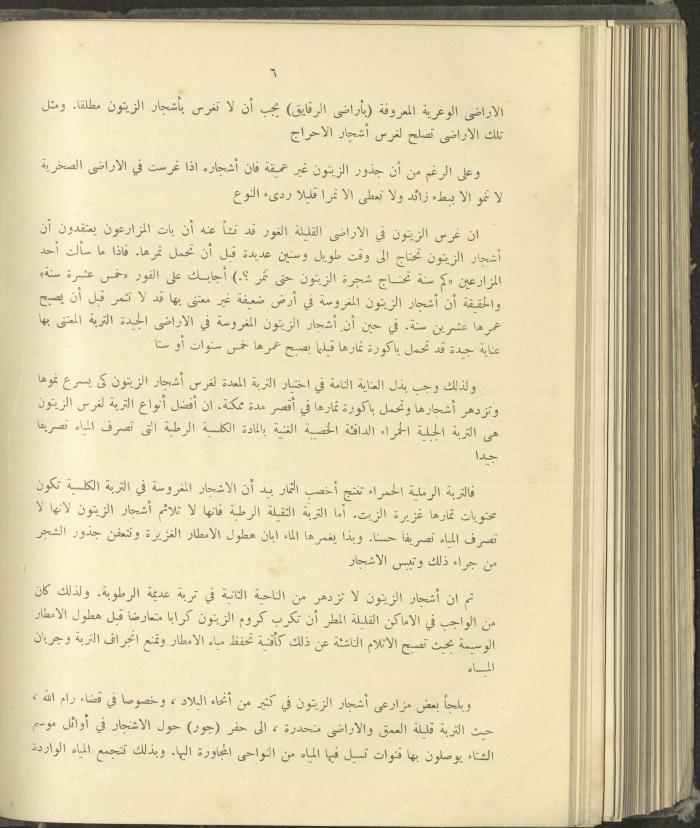 ٦
الاراضى الوعرية المعروفة (بأراضى الرقايق) يجب أن لا تغرس بأشجار الزيتون مطلقا. ومثل
تلك الاراضى تصلح لغرس أشجار الاحراج
وعلى الرغم من أن جذور الزيتون غير عميقة فان أشجاره اذا غرست في الاراضى الصخرية
لا تنمو الا ببطء زائد ولا تعطى الا ثمرا قليلا ردىء النوع
ان غرس الزيتون في الاراضى القليلة الغور قد نشأ عنه أن بات المزارعون يعتقدون أن
أشجار الزيتون تحتاج الى وقت طويل وسنين عديدة قبل أن تحمل ثمرها. فاذا ما سألت أحد
المزارعين «كم سنة تحتـاج شجرة الزيتون حتى تثمر ؟.) أجابـك على الفور «خمس عشرة سنة»
والحقيقة أن أشجار الزيتون المغروسة في أرض ضعيفة غير معتنى بها قد لا تثمر قبل أن يصبح
عمرها عشرين سنة. في حين أن أشجار الزيتون المغروسة في الاراضى الجيدة التربة المعتنى بها
عناية جيدة قد تحمل باكورة ثمارها قبلما يصبح عمرها خمس سنوات أو ستا
ولذلك وجب بذل العناية التامة في اختيار التربة المعدة لغرس أشجار الزيتون كى يسرع نموها
وتزدهر أشجارها وتحمل باكورة ثمارها في أقصر مدة ممكنة. ان أفضل أنواع التربة لغرس الزيتون
هى التربة الجبلية الحمراء الدافئة الخصيبة الغنية بالمادة الكلسية الرطبة التى تصرف المياه تصريفا
جيدا
فالتربة الرملية الحمراء تنتج أخصب الثمار بيد أن الاشجار المغروسة في التربة الكلسية تكون
محتويات ثمارها غزيرة الزيت. أما التربة الثقيلة الرطبة فانها لا تلائم أشجار الزيتون لانها لا
تصرف المياه تصريفا حسنا. وبذا يغمرها الماء ابان هطول الامطار الغزيرة وتتعفن جذور الشجر
من جراء ذلك وتيبس الاشجار
ثم ان أشجار الزيتون لا تزدهر من الناحية الثانية في تربة عديمة الرطوبة. ولذلك كان
من الواجب في الاماكن القليلة المطر أن تكرب كروم الزيتون كرابا متعارضا قبل هطول الامطار
الوسيمة بحيث تصبح الاتلام الناشئة عن ذلك كأقنية تحفظ مياه الامطار وتمنع انجراف التربة وجريان
الميـاه
ويلجأ بعض مزارعى أشجار الزيتون في كثير من أنحاء البلاد ، وخصوصا في قضاء رام الله ،
حيث التربة قليلة العمق والاراضى منحدرة ، الى حفر (جور) حول الاشجار في أوائل موسم
الشتاء يوصلون بها قنوات تسيل فيها المياه من النواحى المجاورة اليها. وبذلك تتجمع المياه الواردة